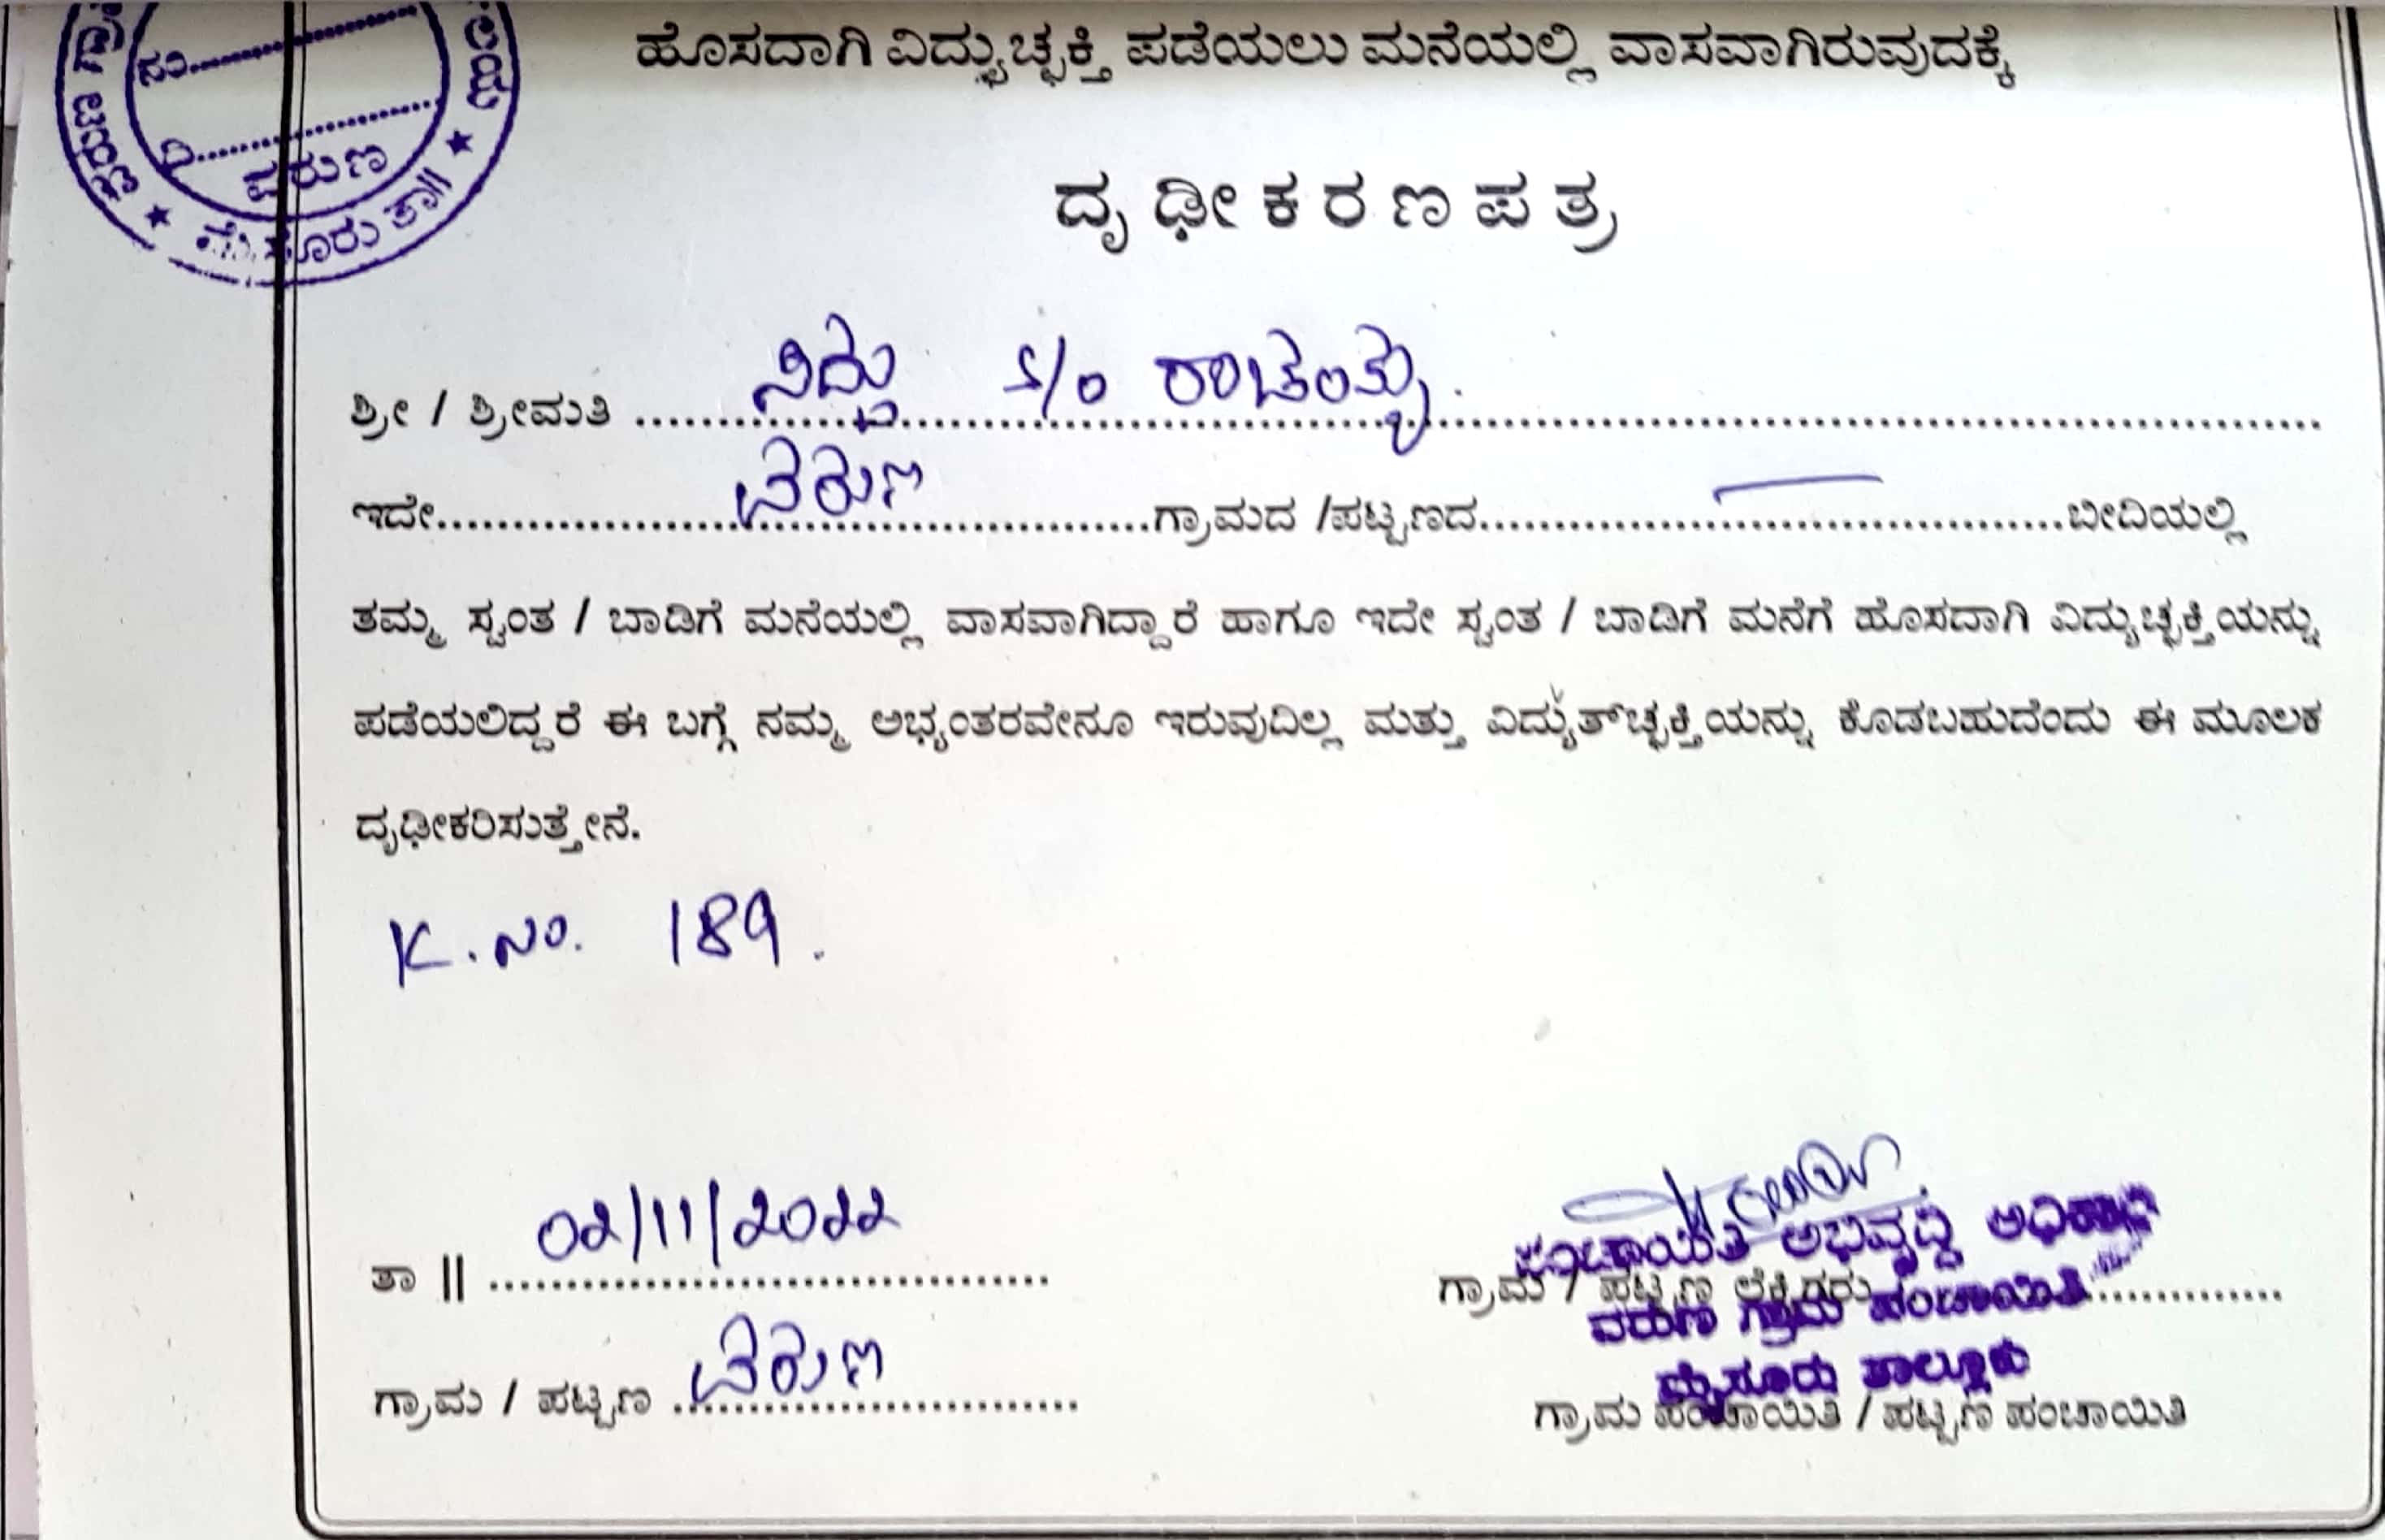 ಹೊಸದಾಗಿ ವಿದ್ಯುಚ್ಛಕ್ತಿ ಪಡೆಯಲು ಮನೆಯಲ್ಲಿ ವಾಸವಾಗಿರುವುದಕ್ಕೆ
ವರುಣ
ಮೈಸೂರು ತಾ||
ದೃಢೀಕರಣಪತ್ರ
ಶ್ರೀ / ಶ್ರೀಮತಿ ಸಿದ್ದು S/o ರಾಚಯ್ಯ.
ಇದೇ ವರುಣ ಗ್ರಾಮದ /ಪಟ್ಟಣದ ಬೀದಿಯಲ್ಲಿ
ತಮ್ಮ ಸ್ವಂತ / ಬಾಡಿಗೆ ಮನೆಯಲ್ಲಿ ವಾಸವಾಗಿದ್ದಾರೆ ಹಾಗೂ ಇದೇ ಸ್ವಂತ / ಬಾಡಿಗೆ ಮನೆಗೆ ಹೊಸದಾಗಿ ವಿದ್ಯುಚ್ಛಕ್ತಿಯನ್ನು
ಪಡೆಯಲಿದ್ದರೆ ಈ ಬಗ್ಗೆ ನಮ್ಮ ಅಭ್ಯಂತರವೇನೂ ಇರುವುದಿಲ್ಲ ಮತ್ತು ವಿದ್ಯುತ್‌ಚ್ಛಕ್ತಿಯನ್ನು ಕೊಡಬಹುದೆಂದು ಈ ಮೂಲಕ
ದೃಢೀಕರಿಸುತ್ತೇನೆ.
K. No. 189.
ತಾ || 02/11/2022
ಪಂಚಾಯಿತಿ ಅಭಿವೃದ್ಧಿ ಅಧಿಕಾರಿ
ಗ್ರಾಮ / ಪಟ್ಟಣ ಲೆಕ್ಕಿಗರು
ವರುಣ ಗ್ರಾಮ ಪಂಚಾಯಿತಿ
ಮೈಸೂರು ತಾಲ್ಲೂಕು
ಗ್ರಾಮ / ಪಟ್ಟಣ ವರುಣ
ಗ್ರಾಮ ಪಂಚಾಯಿತಿ / ಪಟ್ಟಣ ಪಂಚಾಯಿತಿ